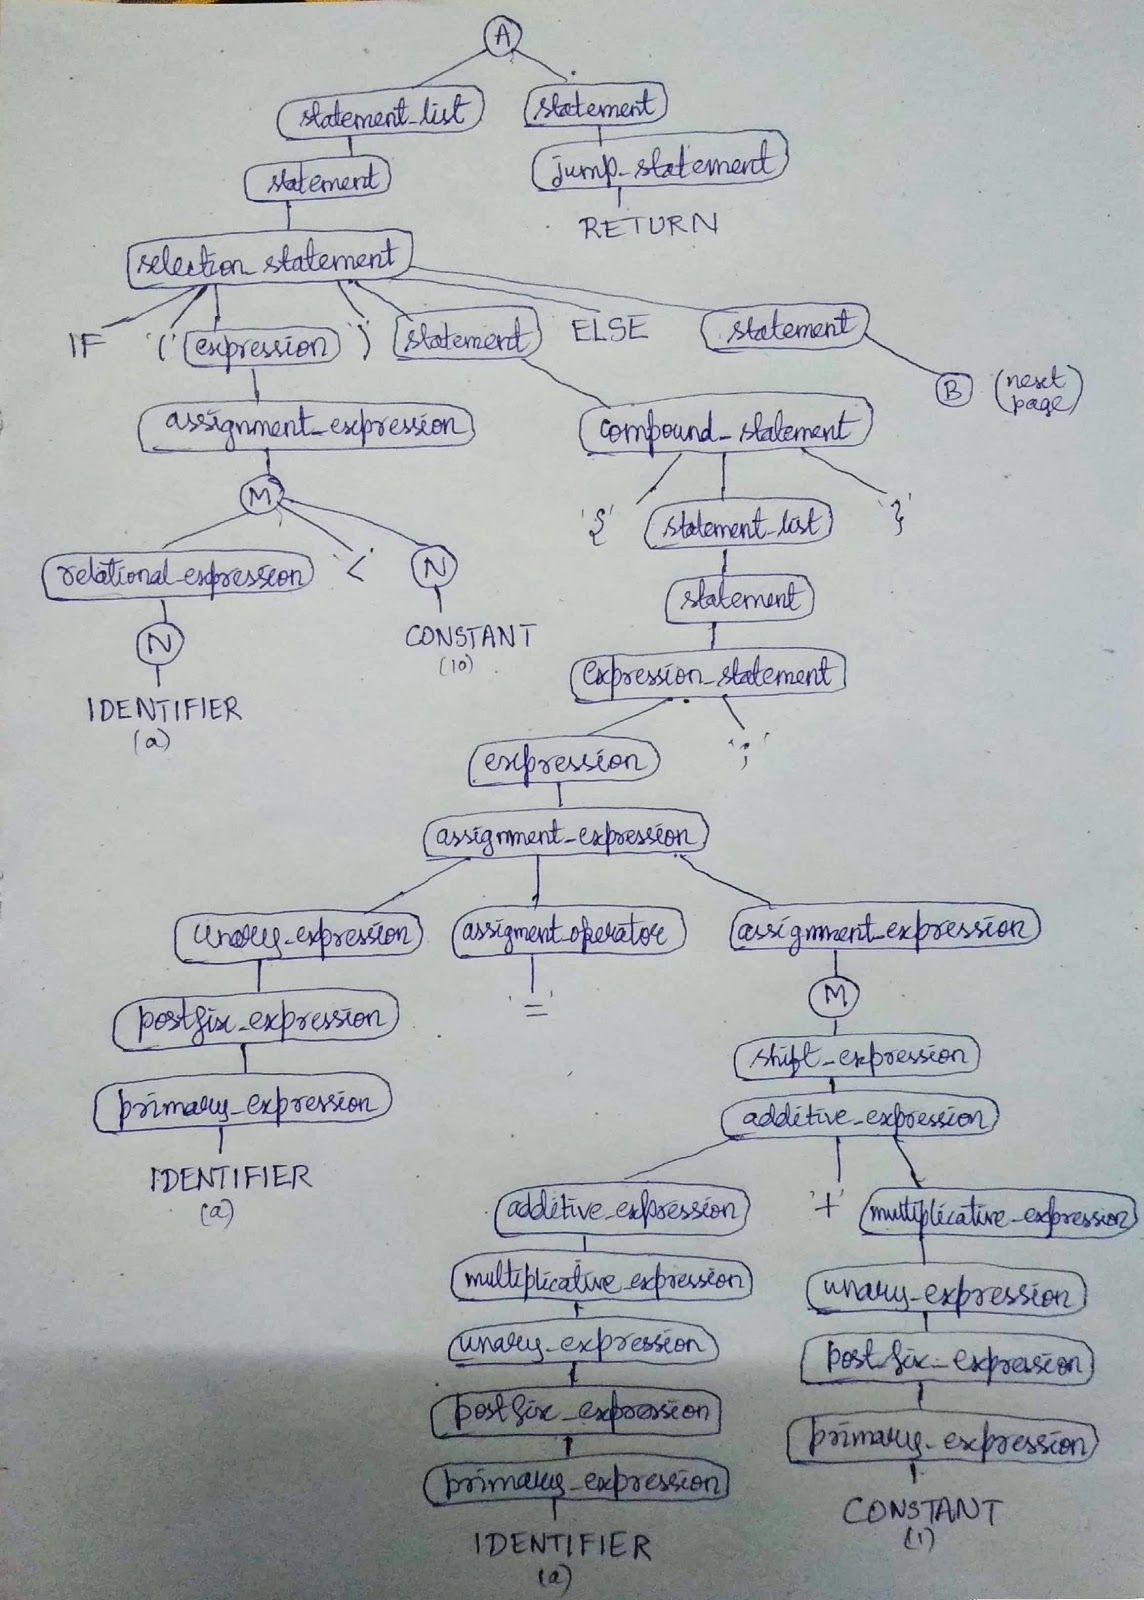 A
statement_list statement
statement jump_statement
RETURN
selection_statement
IF '(' expression ')' statement ELSE statement
B (next page)
assignment_expression compound_statement
M
'{' statement_list '}'
relational_expression '<' N
statement
N CONSTANT
(10)
expression_statement
IDENTIFIER
(a)
expression ';'
assignment_expression
unary_expression assigment_operator assignment_expression
postfix_expression '=' M
shift_expression
primary_expression additive_expression
IDENTIFIER
(a)
additive_expression '+' multiplicative_expression
multiplicative_expression unary_expression
unary_expression postfix_expression
postfix_expression primary_expression
primary_expression
IDENTIFIER CONSTANT
(a) (1)